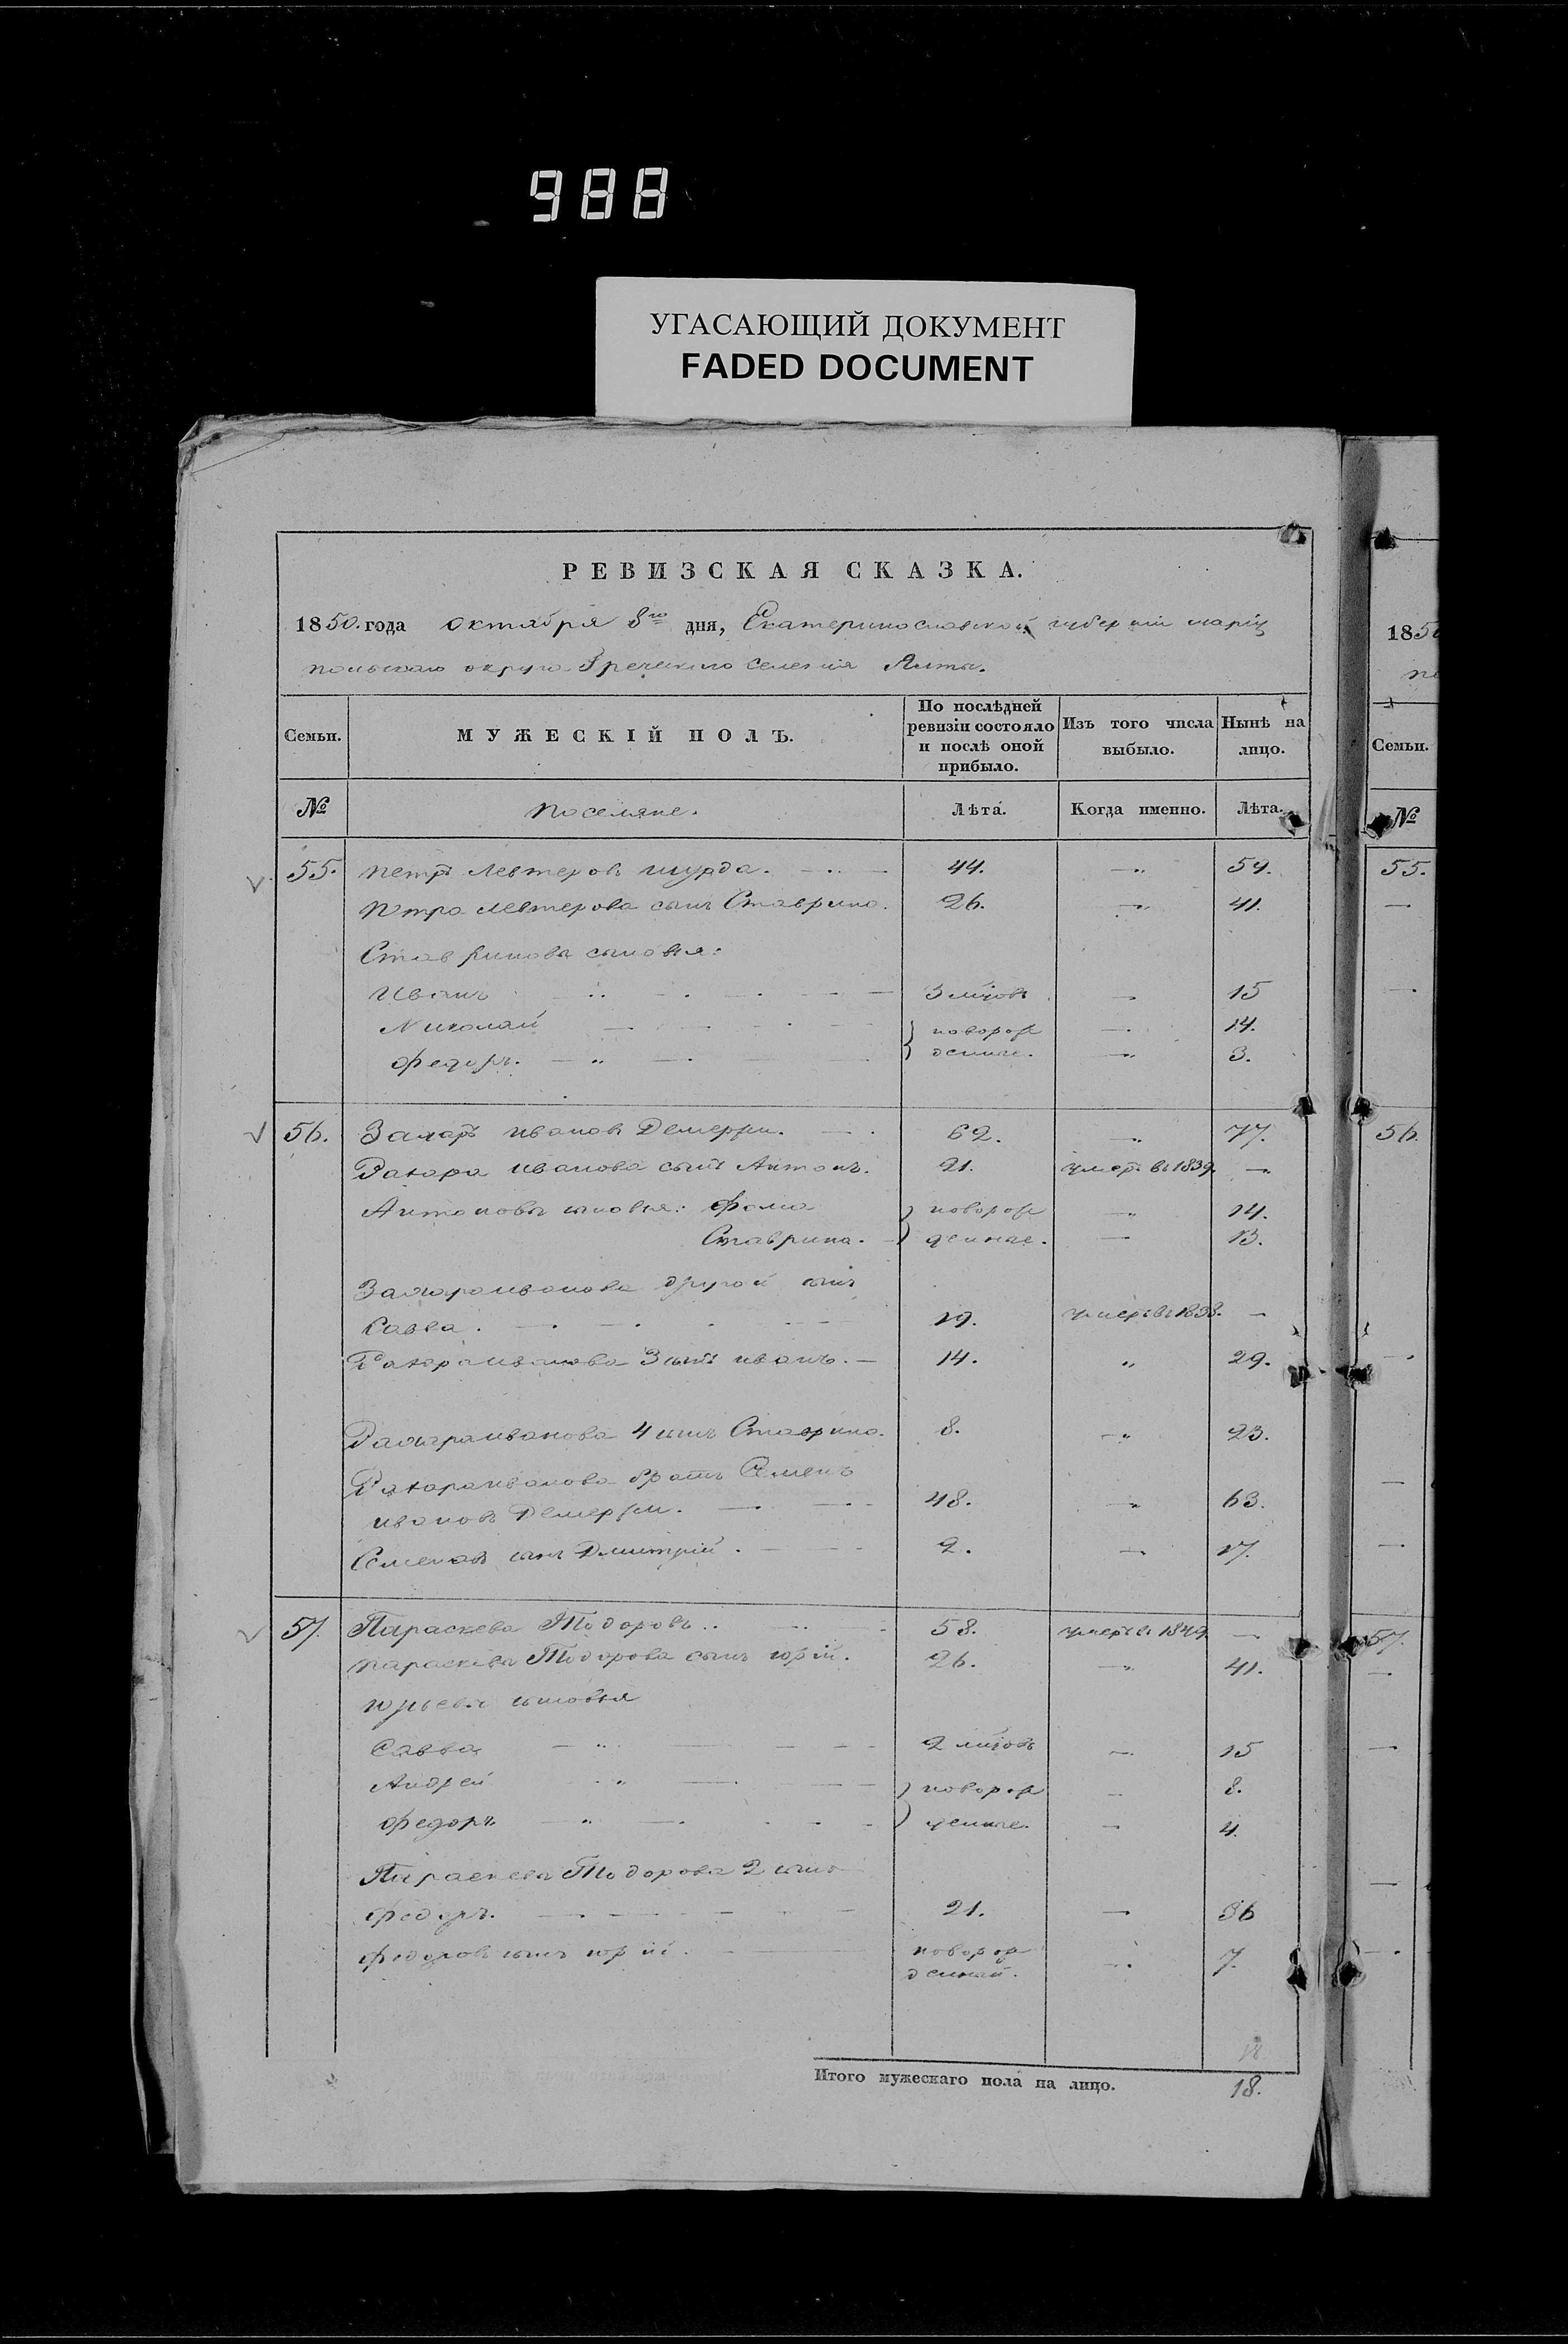 988
УГАСАЮЩИЙ ДОКУМЕНТ
FADED DOCUMENT
РЕВИЗСКАЯ СКАЗКА.
1850. года октября 8го дня, Екатеринославской губерніи маріу
польскаго округа Греческаго селенія Ялты.
Семьи. МУЖЕСКІЙ ПОЛЪ. По послѣдней ревизіи состояло и послѣ оной прибыло. Изъ того числа выбыло. Нынѣ на лицо.
№ поселяне. Лѣта. Когда именно. Лѣта.
55. петръ Левтеровъ шурда. 44. 59.
петра Левтерова сынъ Ставрино. 26. 41.
Ставриновы сыновья:
Иванъ 3 мцовъ 15
Николай новорож 14.
Федоръ. денные. 3.
56. Захаръ ивановъ Демерджи. 62. 77.
Захара иванова сынъ Антонъ. 21. умеръ въ 1839. —
Антоновы сыновья: Фома новорож 14.
Ставрина. денные. 13.
Захара иванова другой сынъ
Савва. 19. умеръ въ 1838. —
Захара иванова 3 сынъ иванъ. 14. 29.
Захара иванова 4 сынъ Ставрино. 8. 23.
Захара иванова братъ Семенъ
ивановъ Демерджи. 48. 63.
Семеновъ сынъ Дмитрій. 2. 17.
57. Параскева Тодоровъ. 58. умеръ въ 1849. —
параскева Тодорова сынъ юрій. 26. 41.
юрьевы сыновья
Савва 2 мцовъ 15
Андрей новорож 8.
Федоръ денные. 4.
Параскева Тодорова 2 сынъ
Федоръ. 21. 36
Федоровъ сынъ юрій. новорож 7.
денный.
Итого мужескаго пола на лицо. 18.
1850
Семьи.
№
55.
56.
57.